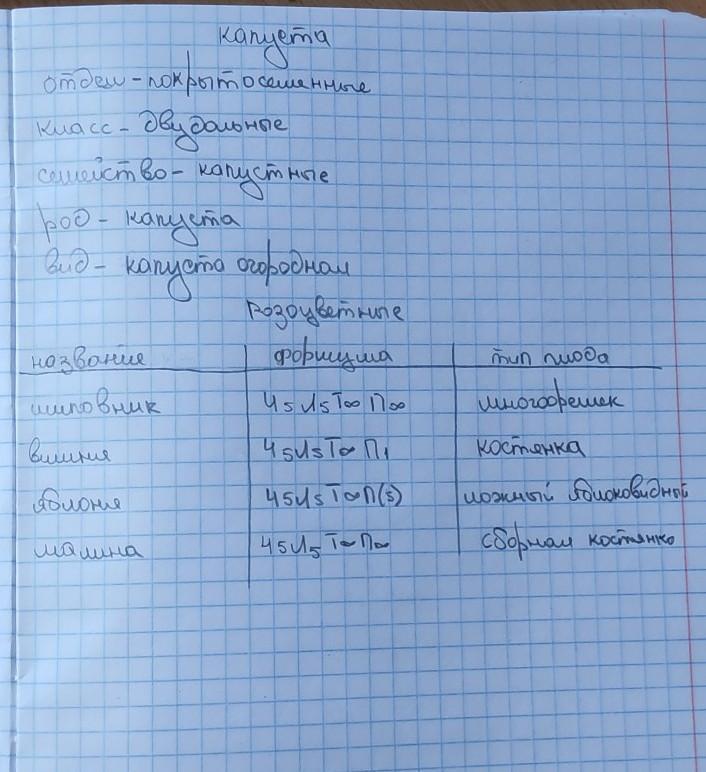 капуста
отдел - покрытосеменные
класс - двудольные
семейство - капустные
род - капуста
вид - капуста огородная
Розоцветные
название формула тип плода
шиповник Ч5Л5Т∞П∞ многоорешек
вишня Ч5Л5Т∞П1 костянка
яблоня Ч5Л5Т∞П(5) ложный яблоковидный
малина Ч5Л5Т∞П∞ сборная костянка